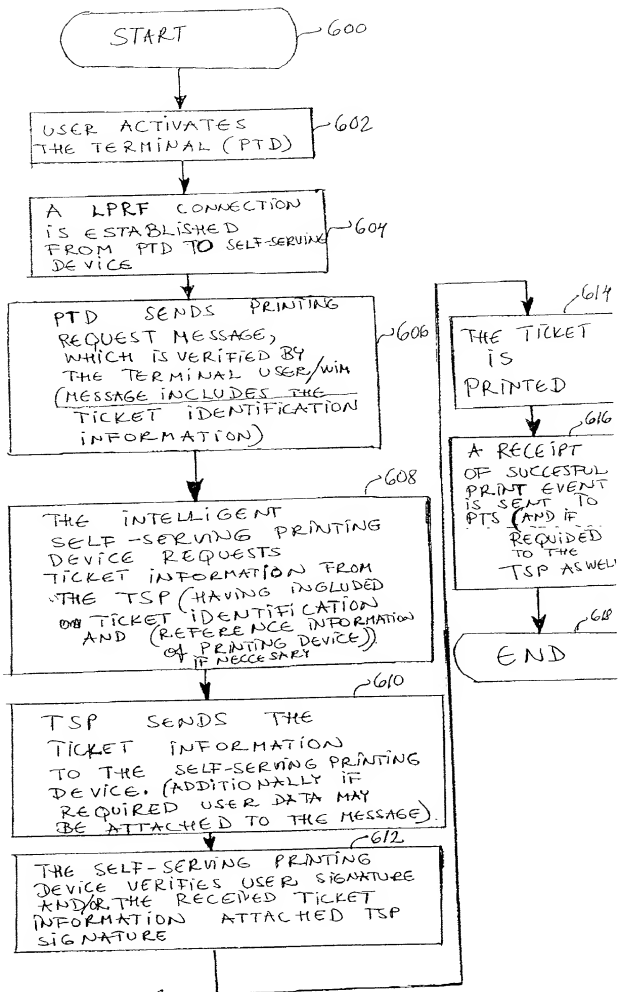 START
600
USER ACTIVATES
THE TERMINAL (PTD)
602
A LPRF CONNECTION
IS ESTABLISHED
FROM PTD TO SELF-SERVING
DEVICE
604
PTD SENDS PRINTING
REQUEST MESSAGE,
WHICH IS VERIFIED BY
THE TERMINAL USER/WIM
(MESSAGE INCLUDES THE
TICKET IDENTIFICATION
INFORMATION)
606
608
THE INTELLIGENT
SELF-SERVING PRINTING
DEVICE REQUESTS
TICKET INFORMATION FROM
THE TSP (HAVING INCLUDED
TICKET IDENTIFICATION
AND (REFERENCE INFORMATION
OF PRINTING DEVICE))
IF NECCESARY
610
TSP SENDS THE
TICKET INFORMATION
TO THE SELF-SERVING PRINTING
DEVICE. (ADDITIONALLY IF
REQUIRED USER DATA MAY
BE ATTACHED TO THE MESSAGE).
612
THE SELF-SERVING PRINTING
DEVICE VERIFIES USER SIGNATURE
AND/OR THE RECEIVED TICKET
INFORMATION ATTACHED TSP
SIGNATURE
614
THE TICKET
IS
PRINTED
616
A RECEIPT
OF SUCCESFUL
PRINT EVENT
IS SENT TO
PTS (AND IF
REQUIDED
TO THE
TSP ASWELL
618
END